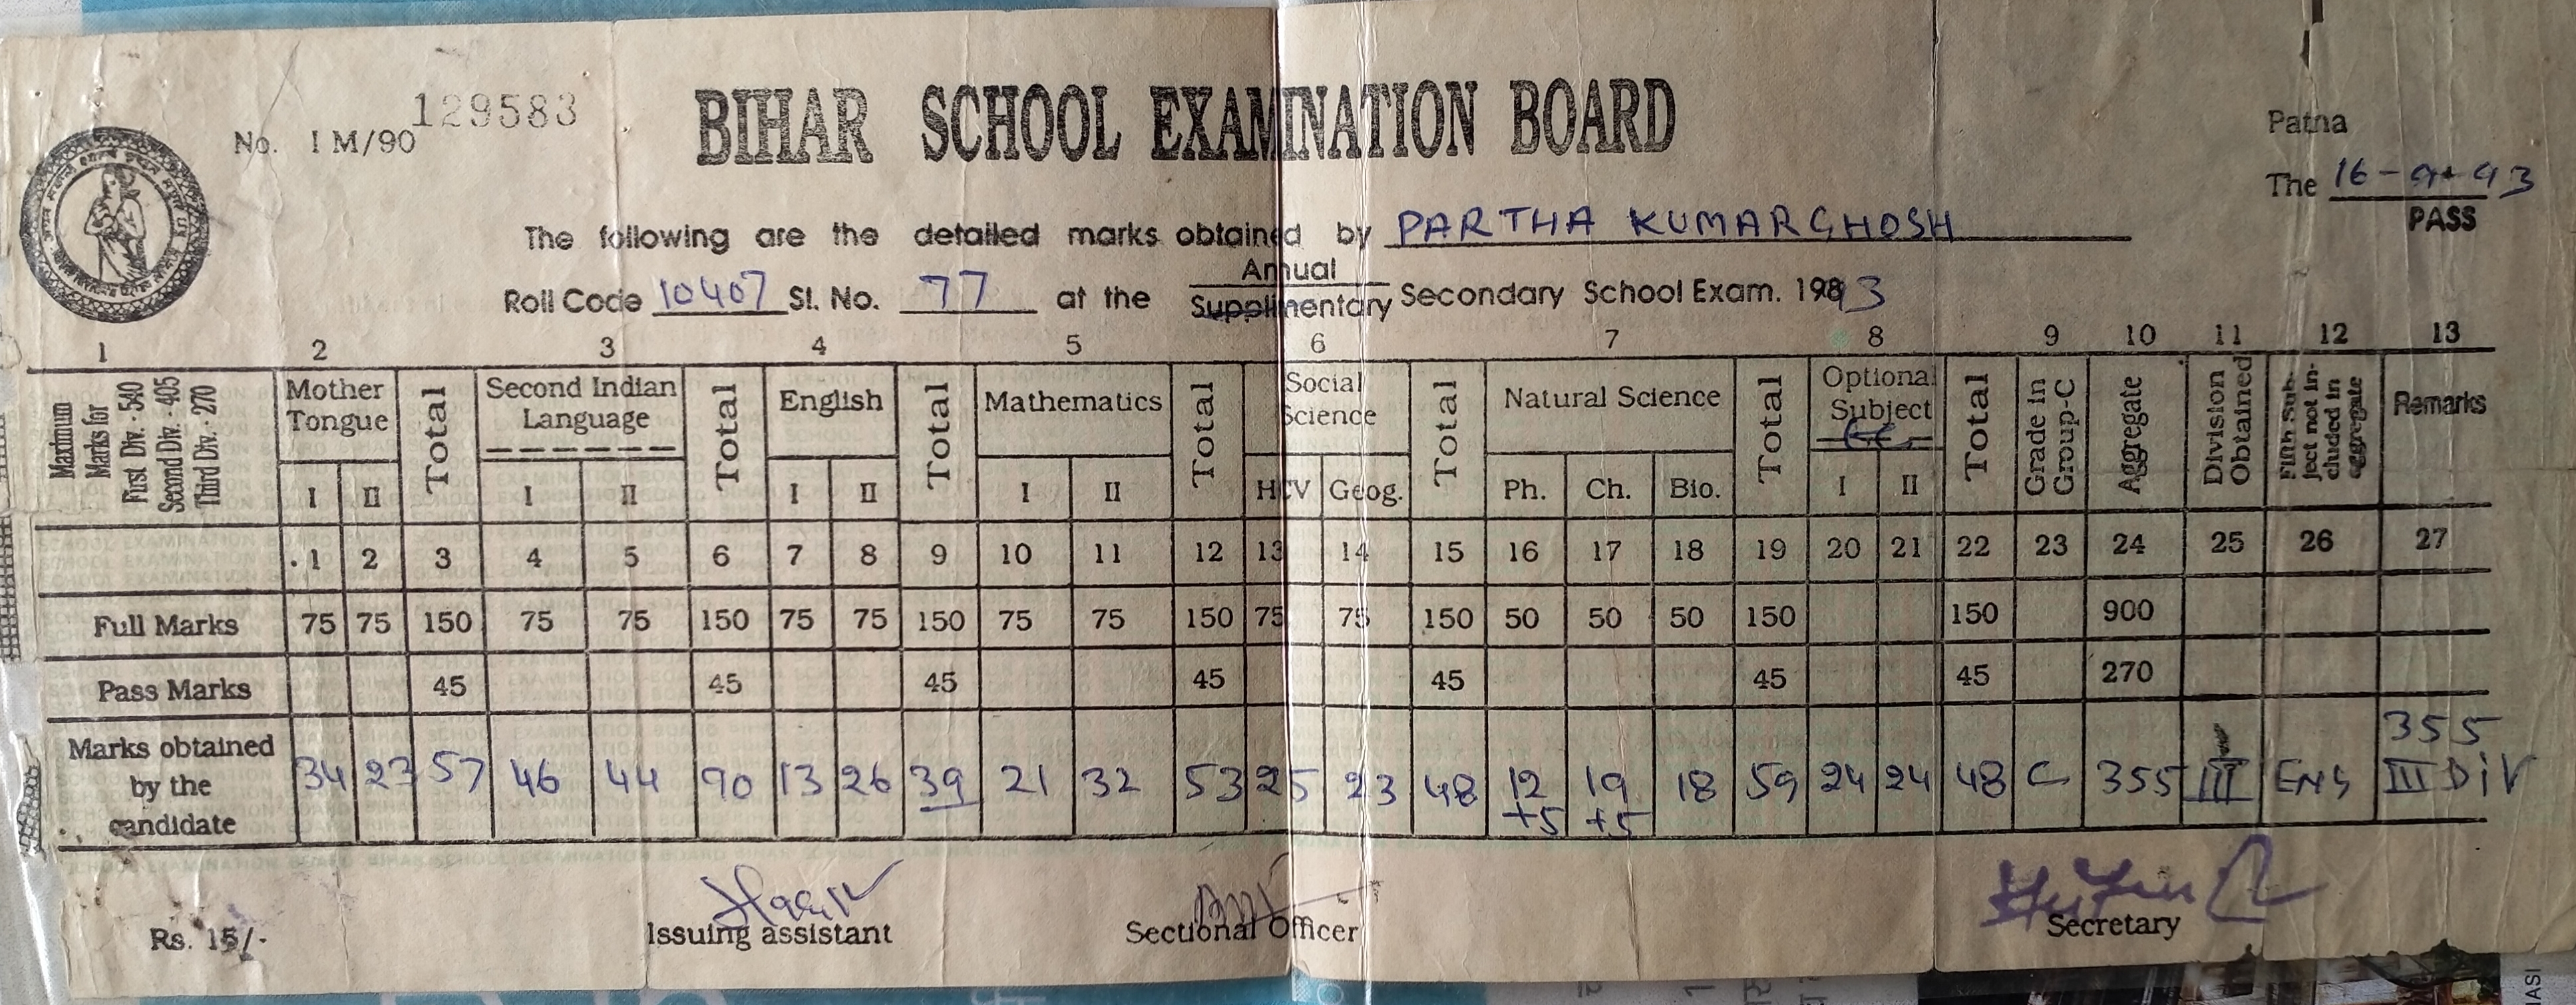 129583
No. I M/90
BIHAR SCHOOL EXAMINATION BOARD
Patna
The 16-
93
PASS
The following are the detailed marks obtained by PARTHA KUMAR GHOSH
Annual
Roll Code 10407 Sl. No. 77 at the Supplimentary Secondary School Exam. 1993
1 2 3 4 5 6 7 8 9 10 11 12 13
Maximum Marks for First Div. - 540 Second Div. - 405 Third Div. - 270
Mother Tongue Total Second Indian Language Total English Total Mathematics Total Social Science Total Natural Science Total Optional Subject Total Grade in Group-C Aggregate Division Obtained Fifth Sub-ject not in-cluded in aggregate Remarks
I II I II I II I II HCV Geog. Ph. Ch. Bio. I II
1 2 3 4 5 6 7 8 9 10 11 12 13 14 15 16 17 18 19 20 21 22 23 24 25 26 27
Full Marks 75 75 150 75 75 150 75 75 150 75 75 150 75 75 150 50 50 50 150 150 900
Pass Marks 45 45 45 45 45 45 45 270
355
Marks obtained by the candidate 34 23 57 46 44 90 13 26 39 21 32 53 25 23 48 12 +5 19 +5 18 59 24 24 48 C 355 III ENG III DIV
Rs. 15/-
Issuing assistant
Sectional Officer
Secretary